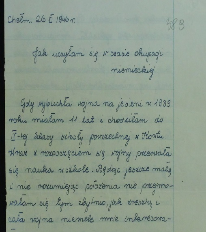 Chełm, 26 X 1946 r.
Jak uczyłam się w czasie okupacji
niemieckiej
Gdy wybuchła wojna na jesieni w 1939
roku miałam 11 lat i chodziłam do
klasy szkoły powszechnej w
wraz z rozpoczęciem się wojny przerwała
się nauka w szkole. Będąc jeszcze małą
i nie rozumiejąc położenia nie przejmo-
wałam się tym zbytnio, jak zresztą i
cała wojna niewiele mnie interesowa-